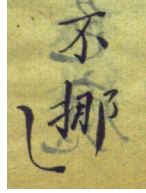 不挪し